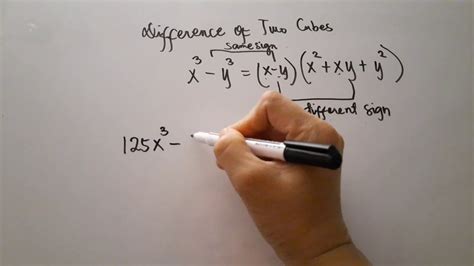 Difference of Two Cubes
same sign
x³ - y³ = (x-y)(x² + xy + y²)
different sign
125x³ -